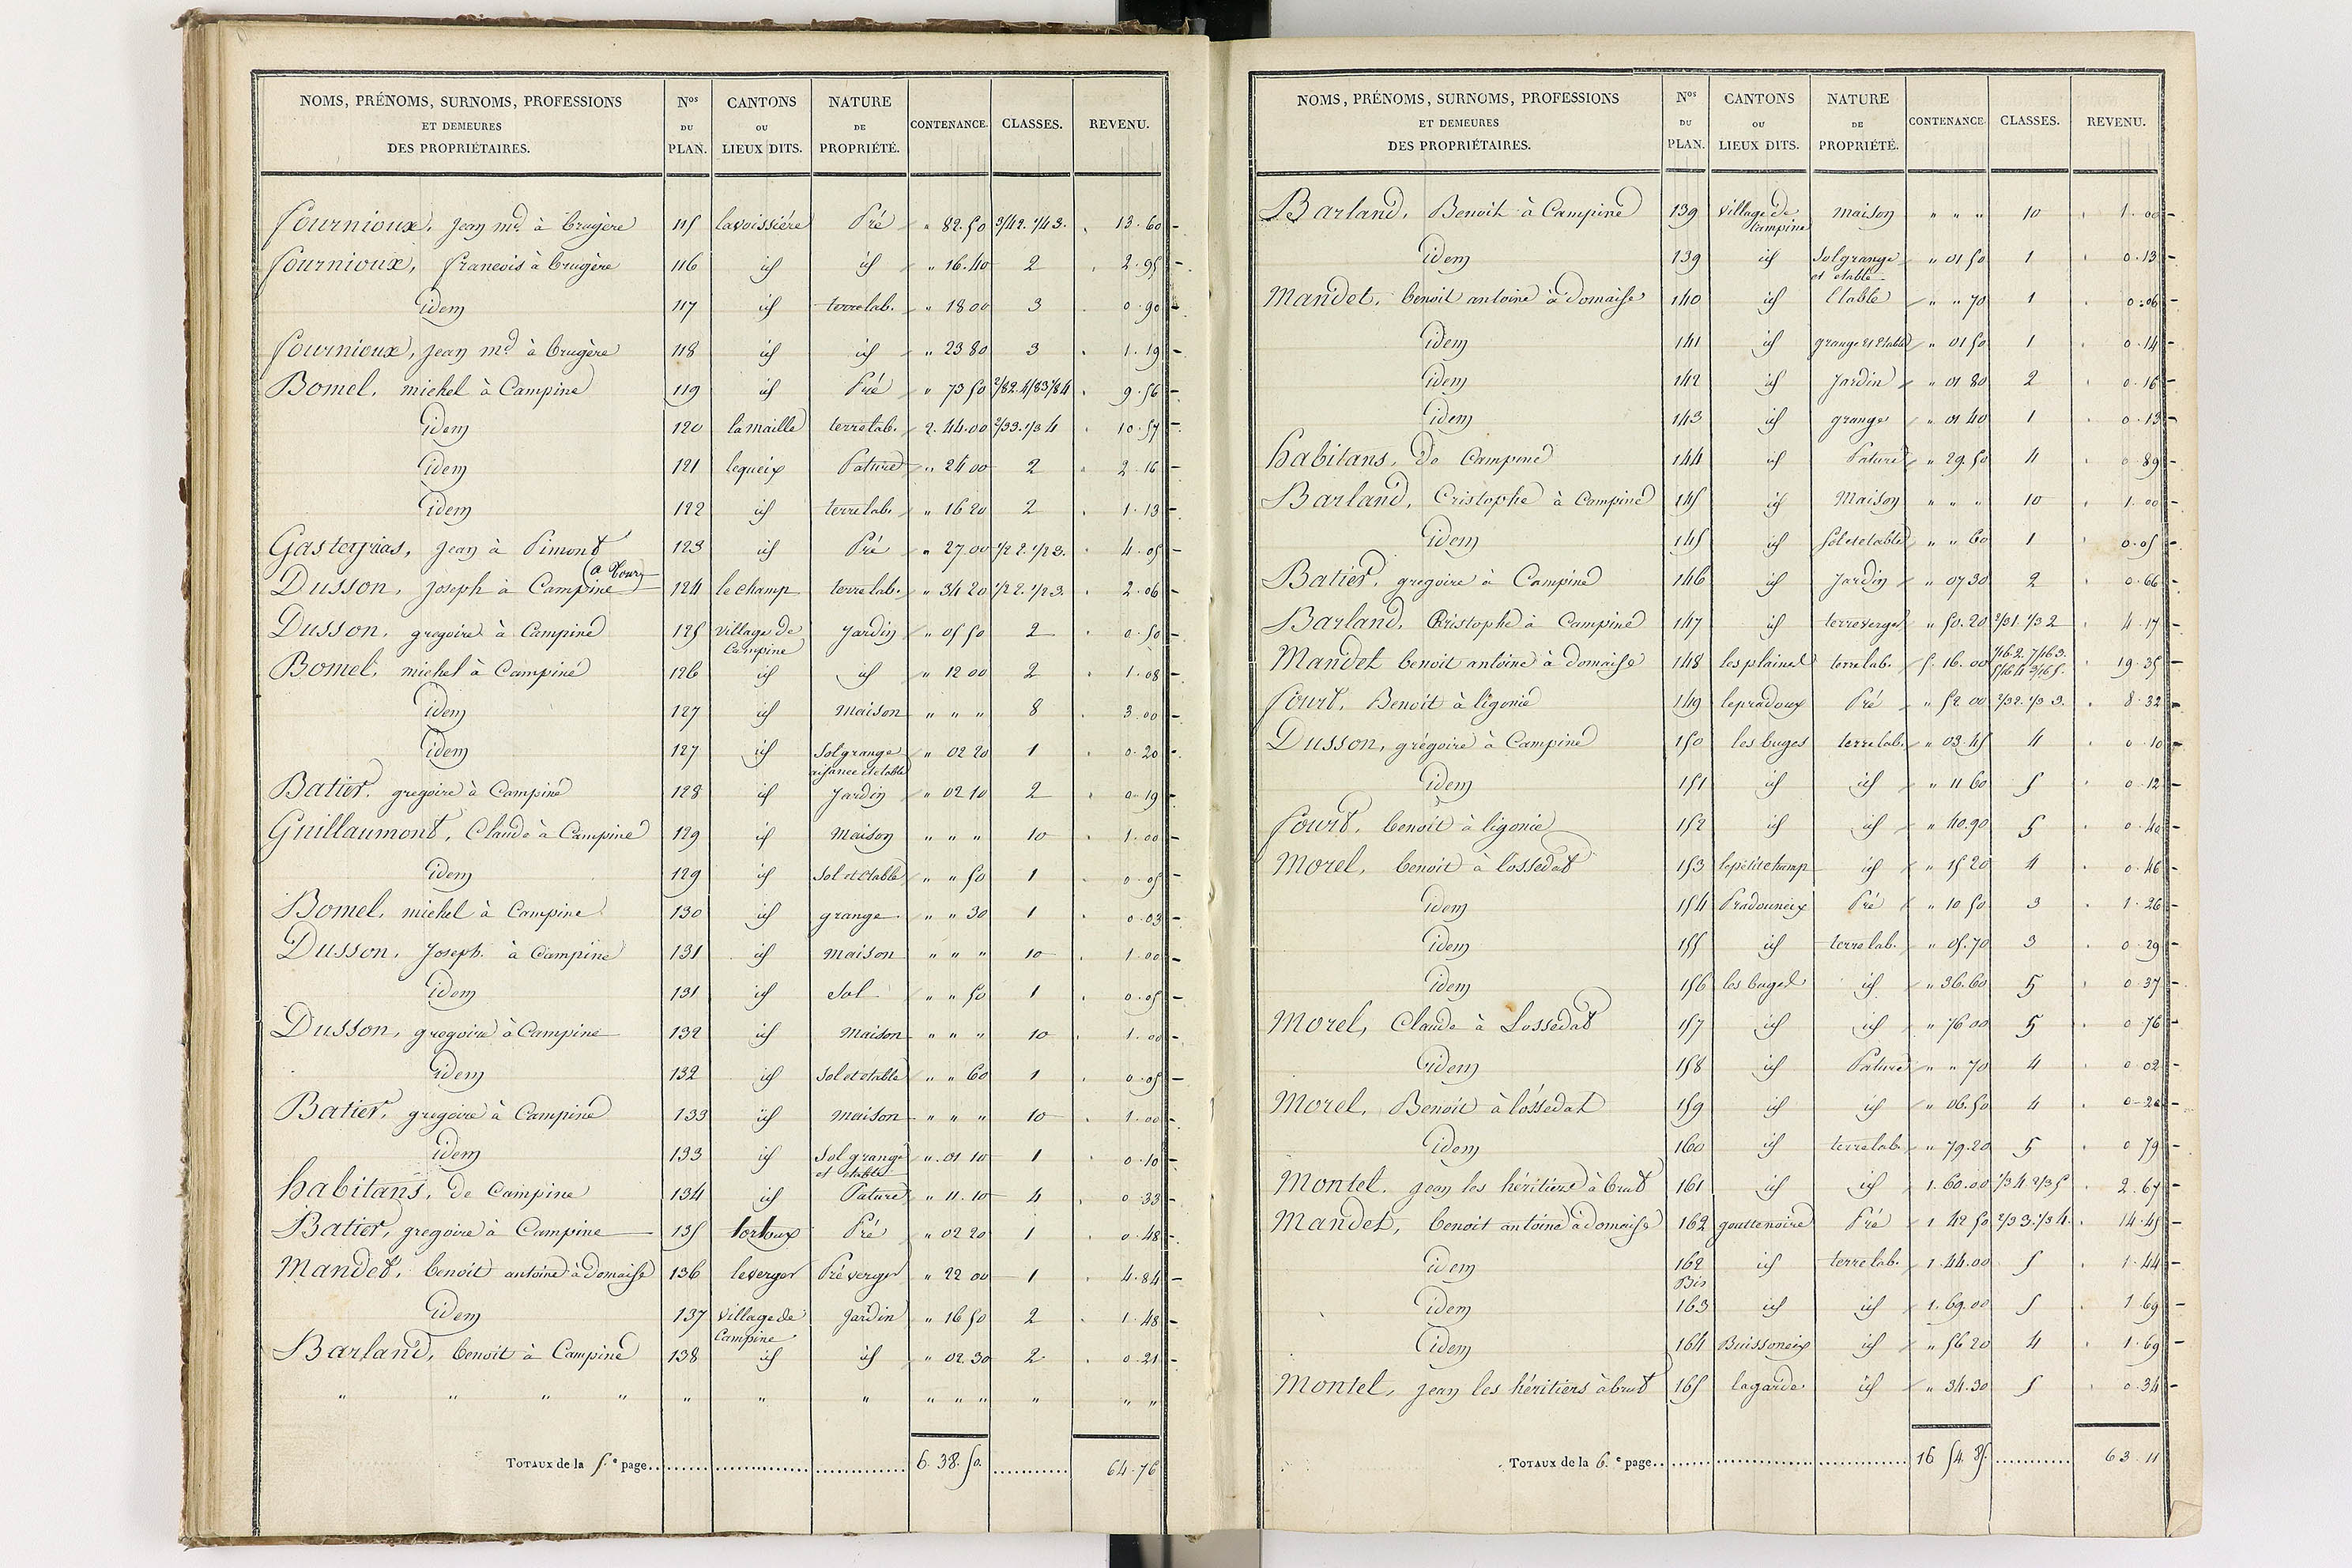 NOMS, PRÉNOMS, SURNOMS, PROFESSIONS ET DEMEURES DES PROPRIÉTAIRES. Nos DU PLAN. CANTONS OU LIEUX DITS. NATURE DE PROPRIÉTÉ. CONTENANCE. CLASSES. REVENU.
Fournioux, Jean md à brugère 115 lavoissière Pré " 82.50 3/4 2. 1/4 3. 13.60
Fournioux, francois à brugère 116 id id " 16.40 2 2.95
idem 117 id terre lab. " 18 00 3 0.90
Fournioux, jean md à brugère 118 id id " 23 80 3 1.19
Bomel, michel à Campine 119 id Pré " 73 50 2/8 2. 4/8 3 1/8 4 9.56
idem 120 lamaille terre lab. 2.44.00 2/3 3. 1/3 4 10.57
idem 121 lequeix Pature " 24 00 2 2.16
idem 122 id terre lab. " 16 20 2 1.13
Jean à Pimont 123 id Pré " 27.00 1/2 2. 1/2 3. 4.05
Dusson, joseph à Campine 124 le champ terre lab. " 34 20 1/2 2. 1/2 3. 2.06
Dusson, gregoire à Campine 125 village de Campine jardin " 05 50 2 0.50
Bomel, michel à Campine 126 id id " 12 00 2 1.08
idem 127 id maison " " " 8 3.00
idem 127 id Sol grange aisance et etable " 02 20 1 0.20
Batier, gregoire à Campine 128 id Jardin " 02 10 2 0.19
Guillaumont, Claude à Campine 129 id maison " " " 10 1.00
idem 129 id Sol et etable " " 50 1 0.05
Bomel, michel à Campine 130 id grange " " 30 1 0.03
Dusson, Joseph à Campine 131 id maison " " " 10 1.00
idem 131 id Sol " " 50 1 0.05
Dusson, gregoire à Campine 132 id maison " " " 10 1.00
idem 132 id Sol et etable " " 60 1 0.05
Batier, gregoire à Campine 133 id maison " " " 10 1.00
idem 133 id Sol grange et etable " 01 10 1 0.10
habitans, de Campine 134 id Pature " 11.10 4 0.33
Batier, gregoire à Campine 135 Pré " 02 20 1 0.48
Mandet, benoit antoine à domaise 136 leverger Pré verger " 22 00 1 4.84
idem 137 village de Campine Jardin " 16 50 2 1.48
Barland, benoit à Campine 138 id id " 02.30 2 0.21
" " " " " " " " " " " " "
TOTAUX de la 5.e page 6.38.50. 64.76
NOMS, PRÉNOMS, SURNOMS, PROFESSIONS ET DEMEURES DES PROPRIÉTAIRES. Nos DU PLAN. CANTONS OU LIEUX DITS. NATURE DE PROPRIÉTÉ. CONTENANCE. CLASSES. REVENU.
Barland, Benoit à Campine 139 village de Campine maison " " " 10 1.00
idem 139 id Sol grange et etable " 01 50 1 0.13
Mandet, benoit antoine à domaise 140 id Etable " " 70 1 0.06
idem 141 id grange et etable " 01 50 1 0.14
idem 142 id Jardin " 01 80 2 0.16
idem 143 id grange " 01 40 1 0.13
habitans, De Campine 144 id Pature " 29.50 4 0.89
Barland, Cristophe à Campine 145 id Maison " " " 10 1.00
idem 145 id Sol et etable " " 60 1 0.05
Batier, gregoire à Campine 146 id Jardin " 07 30 2 0.66
Barland, Cristophe à Campine 147 id terre verger " 50.20 2/3 1. 1/3 2 4.17
Mandet benoit antoine à domaise 148 les plaines terre lab. 5.16.00 1/16 2. 7/16 3. 5/16 4 3/16 5. 19.35
Fourt, Benoit à ligonie 149 lepradoux Pré " 52 00 2/3 2. 1/3 3. 8.32
Dusson, grégoire à Campine 150 les buges terre lab. " 03.45 4 0.10
idem 151 id id " 11 60 5 0.12
Fourt, benoit à ligonie 152 id id " 40.90 5 0.40
Morel, benoit à lossedat 153 lepetit champ id " 15 20 4 0.46
idem 154 Pradouneix Pré " 10 50 3 1.26
idem 155 id terre lab. " 05.70 3 0.29
idem 156 les buges id " 36.60 5 0.37
Morel, Claude à Lossedat 157 id id " 76 00 5 0.76
idem 158 id Pature " " 70 4 0.02
Morel, Benoit à lossedat 159 id id " 06.50 4 0.20
idem 160 id terre lab. " 79.20 5 0.79
Montel, jean les héritiers à brut 161 id id 1.60.00 1/3 4 2/3 5 2.67
Mandet, benoit antoine à domaise 162 gouttenoire Pré 1 42 50 2/3 3. 1/3 4. 14.45
idem 162 Bis id terre lab. 1.44.00 5 1.44
idem 163 id id 1.69.00 5 1.69
idem 164 Buissoneix id " 56 20 4 1.69
Montel, jean les héritiers à brut 165 lagarde id " 34.30 5 0.34
TOTAUX de la 6.e page 16 54.85. 63.11